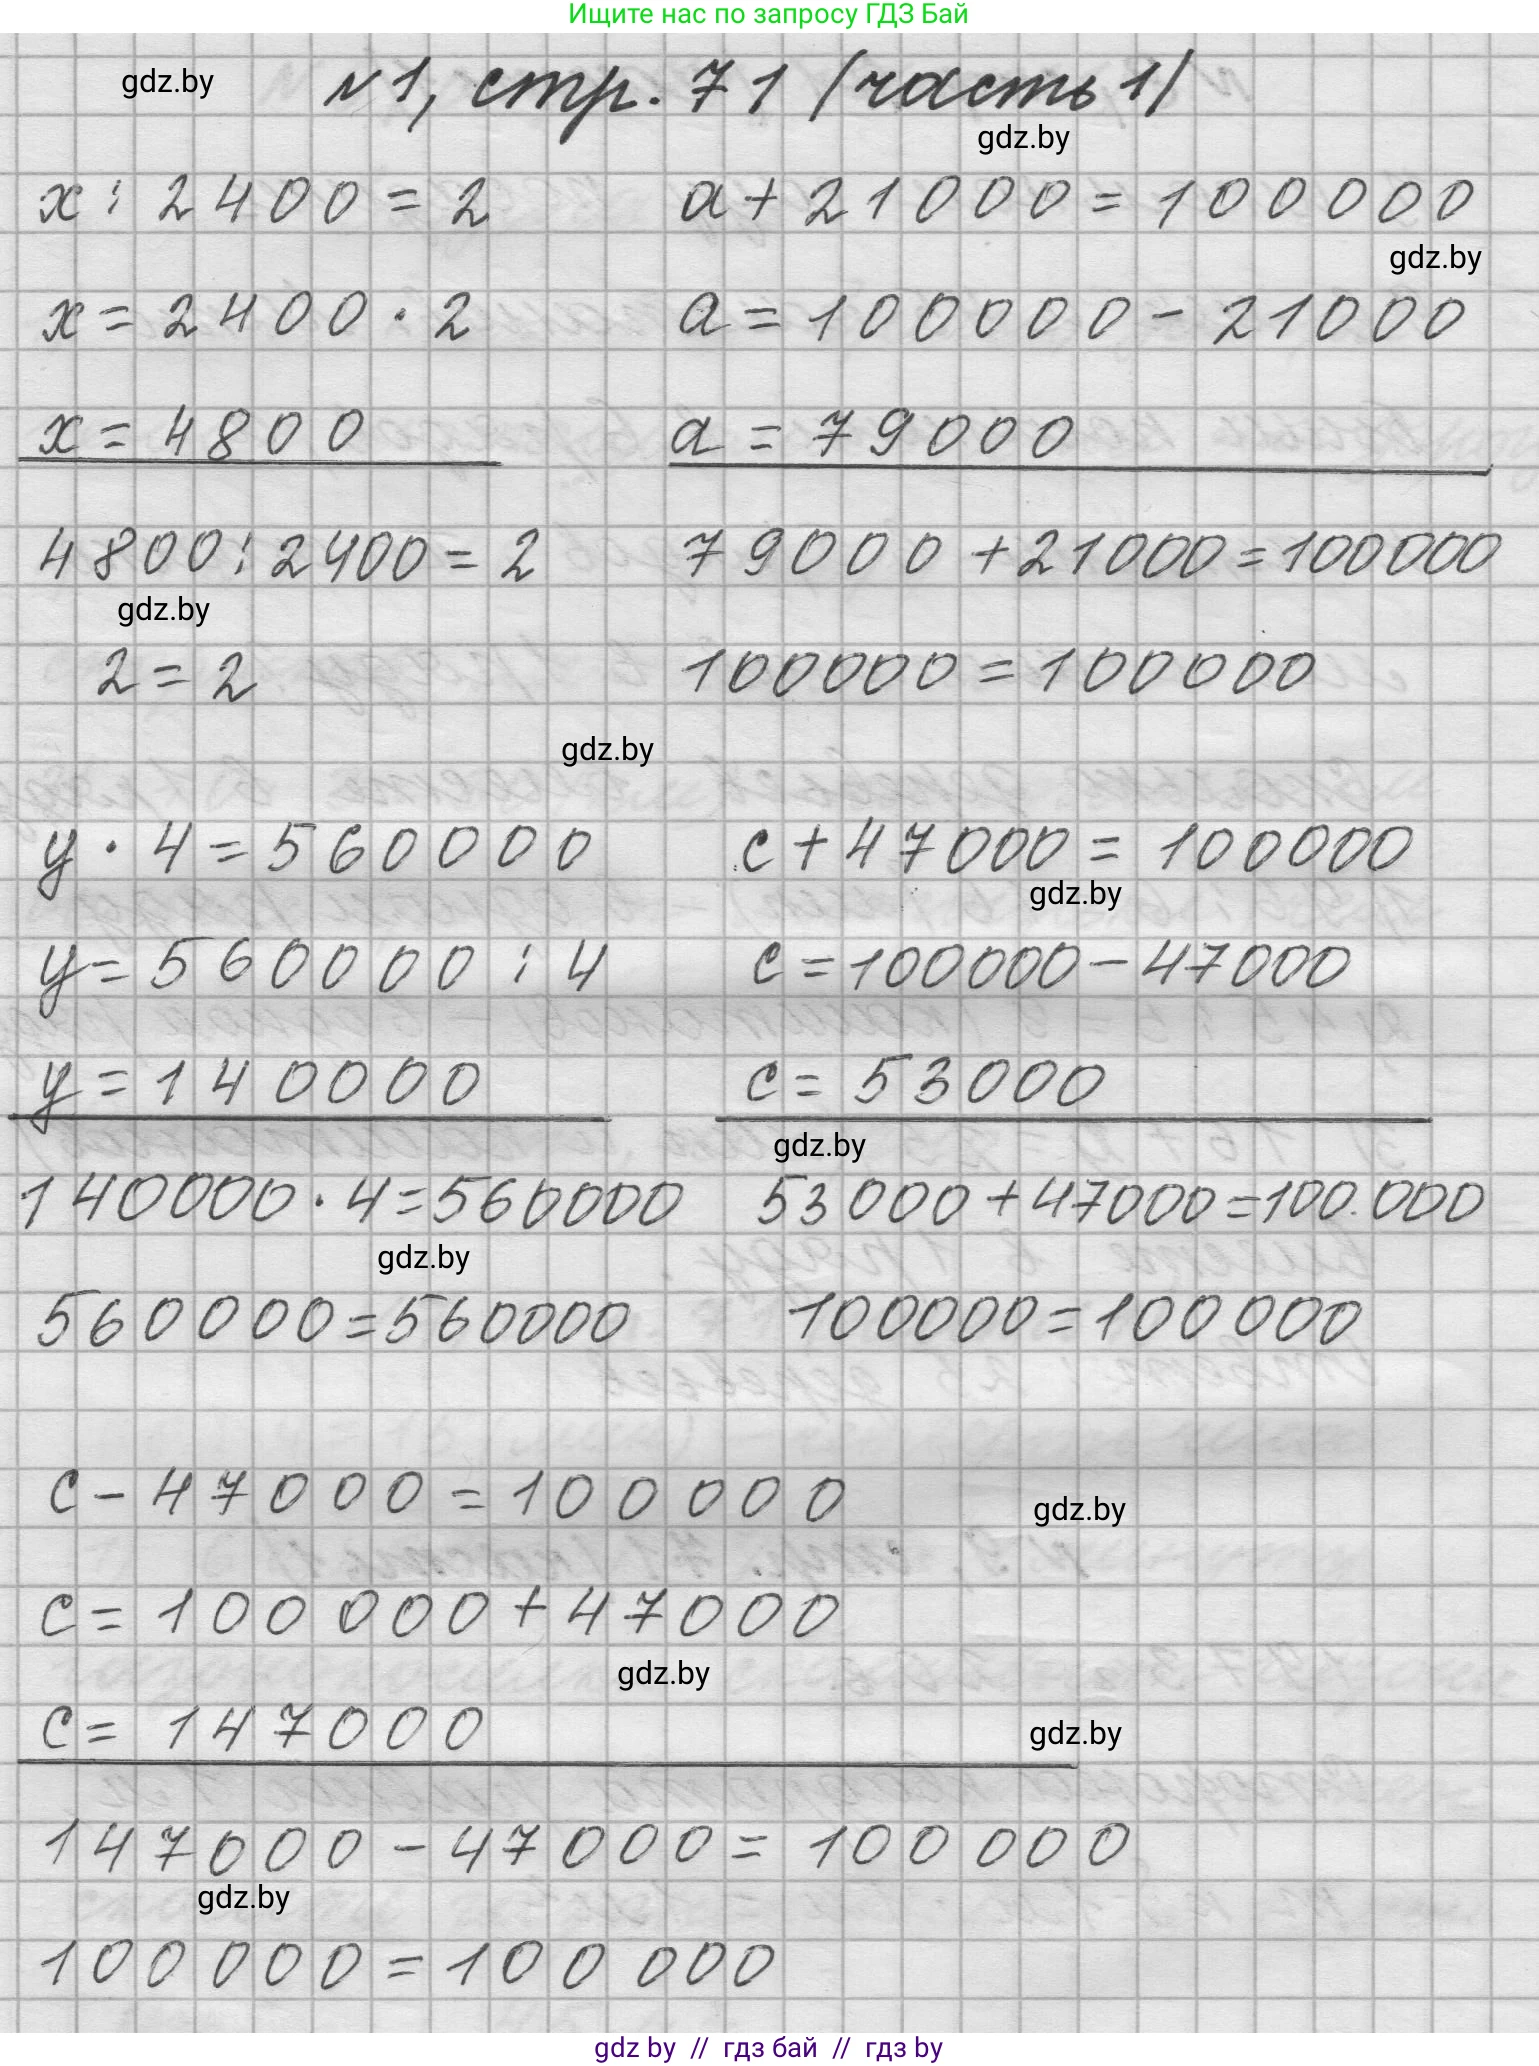 Ищите нас по запросу ГДЗ Бай
gdz.by
№1, стр. 71 (часть 1)
gdz.by
x : 2400 = 2
a + 21000 = 100000
gdz.by
x = 2400 · 2
a = 100000 - 21000
x = 4800
a = 79000
4800 : 2400 = 2
79000 + 21000 = 100000
gdz.by
2 = 2
100000 = 100000
gdz.by
y · 4 = 560000
c + 47000 = 100000
gdz.by
y = 560000 : 4
c = 100000 - 47000
y = 140000
c = 53000
gdz.by
140000 · 4 = 560000
53000 + 47000 = 100.000
gdz.by
560000 = 560000
100000 = 100000
c - 47000 = 100000
gdz.by
c = 100000 + 47000
gdz.by
c = 147000
gdz.by
147000 - 47000 = 100000
gdz.by
100000 = 100000
gdz by // гдз бай // гдз by